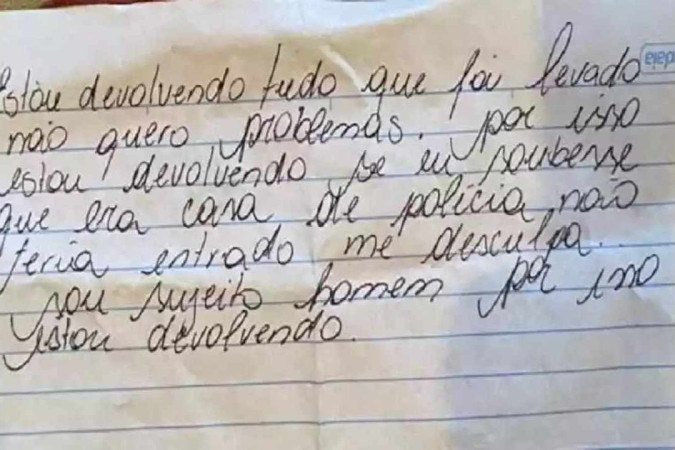 estou devolvendo tudo que foi levado
não quero problemas. por isso
estou devolvendo, se eu soubesse
que era casa de policia, não
teria entrado, me desculpa.
sou sujeito homem por isso
estou devolvendo.